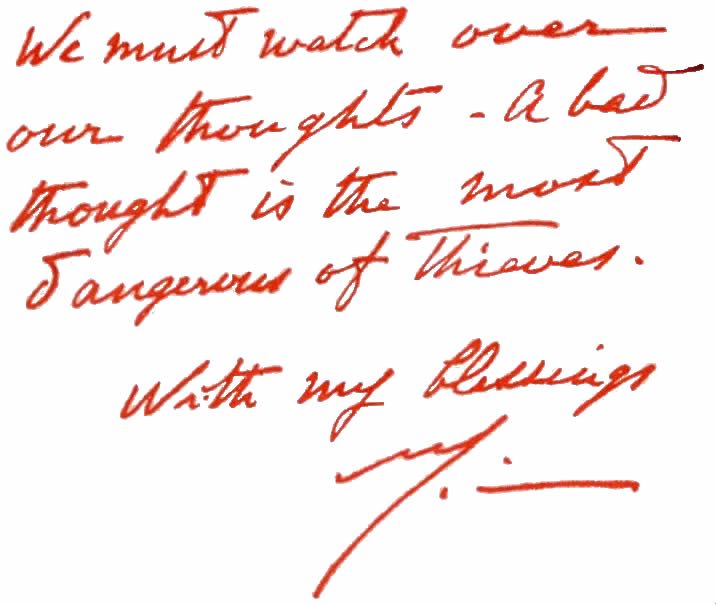 We must watch over
our thoughts - A bad
thought is the most
dangerous of Thieves.
With my blessings